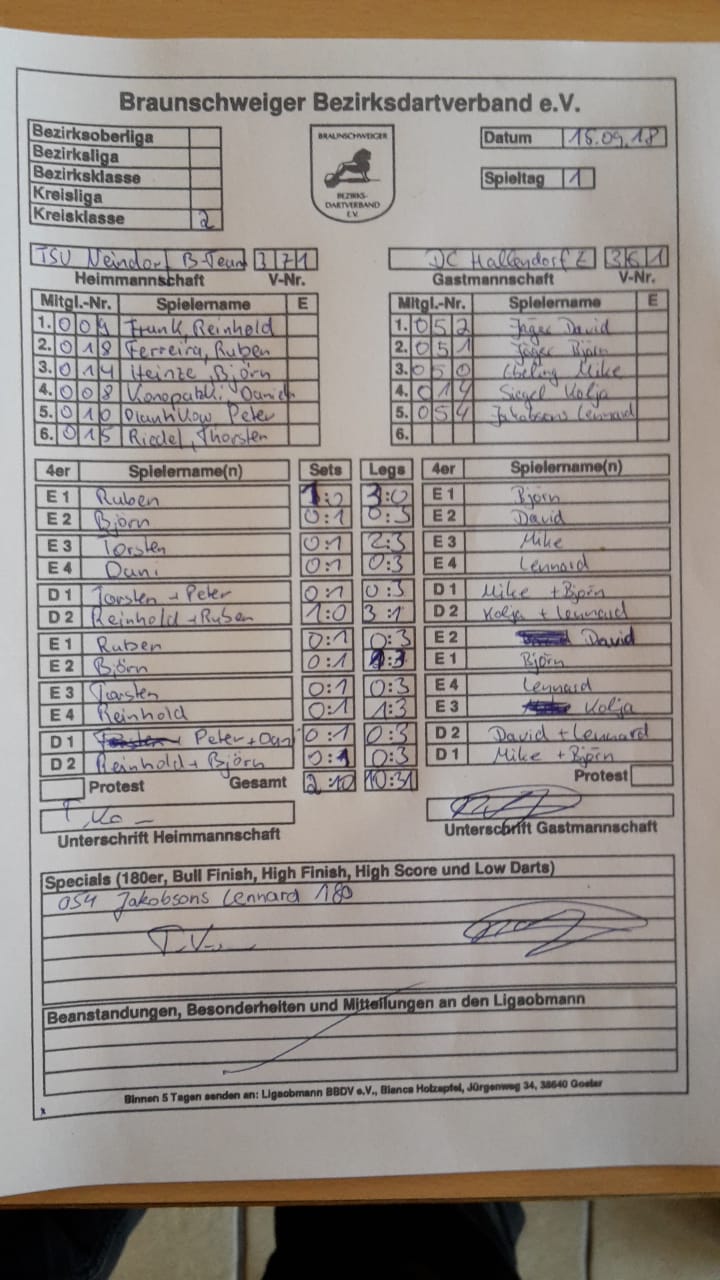 Braunschweiger Bezirksdartverband e.V.
Bezirksoberliga
Bezirksliga
Bezirksklasse
Kreisliga
Kreisklasse 2
BRAUNSCHWEIGER
BEZIRKS-
DARTVERBAND
E.V.
Datum 15.09.18
Spieltag 1
TSV Neindorf B-Team 371
Heimmannschaft V-Nr.
DC Hallendorf E 361
Gastmannschaft V-Nr.
Mitgl.-Nr. Spielername E Mitgl.-Nr. Spielername E
1. 009 Frank, Reinhold 1. 052 Jäger David
2. 018 Ferreira, Ruben 2. 051 Jäger Björn
3. 014 Heinze, Björn 3. 050 Ebeling Mike
4. 008 4. 014 Siegel Kolja
5. 010 Peter 5. 054 Jakobsons Lennard
6. 015 Riedel, Thorsten 6.
4er Spielername(n) Sets Legs 4er Spielername(n)
E 1 Ruben 1:0 3:0 E 1 Björn
E 2 Björn 0:1 0:3 E 2 David
E 3 Torsten 0:1 2:3 E 3 Mike
E 4 Dani 0:1 0:3 E 4 Lennard
D 1 Torsten + Peter 0:1 0:3 D 1 Mike + Björn
D 2 Reinhold + Ruben 1:0 3:1 D 2 Kolja + Lennard
E 1 Ruben 0:1 0:3 E 2 David
E 2 Björn 0:1 :3 E 1 Björn
E 3 Torsten 0:1 0:3 E 4 Lennard
E 4 Reinhold 0:1 1:3 E 3 Kolja
D 1 Peter + Dani 0:1 0:3 D 2 David + Lennard
D 2 Reinhold + Björn 0:1 0:3 D 1 Mike + Björn
Protest Gesamt 2:10 10:31 Protest
Unterschrift Heimmannschaft Unterschrift Gastmannschaft
Specials (180er, Bull Finish, High Finish, High Score und Low Darts)
054 Jakobsons Lennard 180
Beanstandungen, Besonderheiten und Mitteilungen an den Ligaobmann
Binnen 5 Tagen senden an: Ligaobmann BBDV e.V., Bianca Holzapfel, Jürgenweg 34, 38640 Goslar